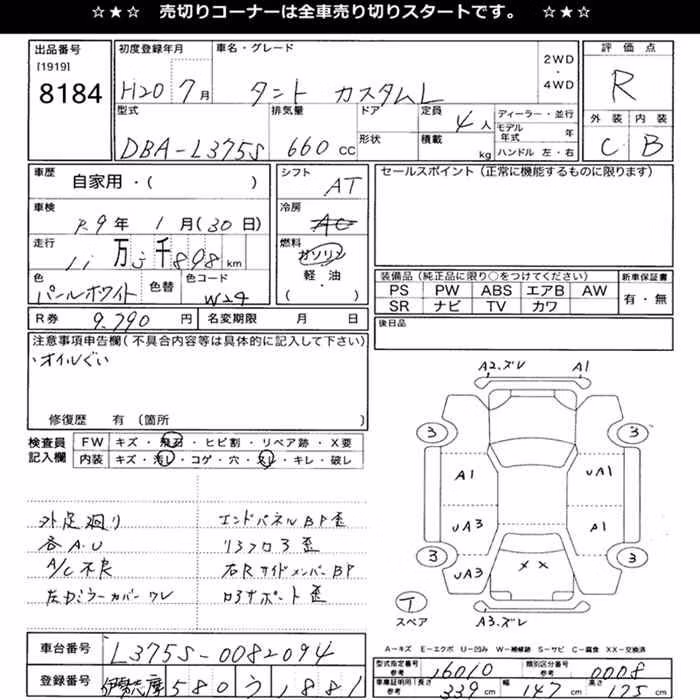 ☆★☆ 売切りコーナーは全車売り切りスタートです。 ☆★☆
出品番号 [1919] 8184
初度登録年月 H20 7月
車名・グレード タント カスタムL
2WD ・ 4WD
評価点 R
外装 C 内装 B
型式 DBA-L375S
排気量 660 CC
ドア 形状
定員 4人
積載 kg
ディーラー・並行
モデル年式 年
ハンドル 左・右
車歴 自家用・( )
シフト AT
セールスポイント(正常に機能するものに限ります)
車検 R9年 1月(30日)
冷房 AC
走行 11万5千898km
燃料 ガソリン 軽・油 ( )
色 パールホワイト 色替
色コード W24
装備品(純正品に限り○をつけてください)
PS PW ABS エアB AW
SR ナビ TV カワ
新車保証書 有・無
R券 9,790円
名変期限 月 日
後日品
注意事項申告欄(不具合内容等は具体的に記入して下さい)
・オイルぐい
修復歴 有(箇所 )
検査員記入欄
FW キズ・飛石・ヒビ割・リペア跡・X要
内装 キズ・汚レ・コゲ・穴・スレ・キレ・破レ
外足廻り
各A.U
A/C不良
左ドミラーカバーワレ
エンドパネルBP歪
リヤフロア歪
右RサイドメンバーBP
ロアサポート歪
A2.ズレ A1
3 3
A1 UA1
UA3 A1
3 3
UA3 XX
T スペア
A3.ズレ
A-キズ E-エクボ U-凹み W-補修跡 S-サビ C-腐食 XX-交換済
車台番号 L375S-0082094
登録番号 伊勢志摩 580 う 1881
型式指定番号 参考 16010
類別区分番号 参考 0008
車庫証明用 参考 長さ 339cm 幅 147cm 高さ 175cm